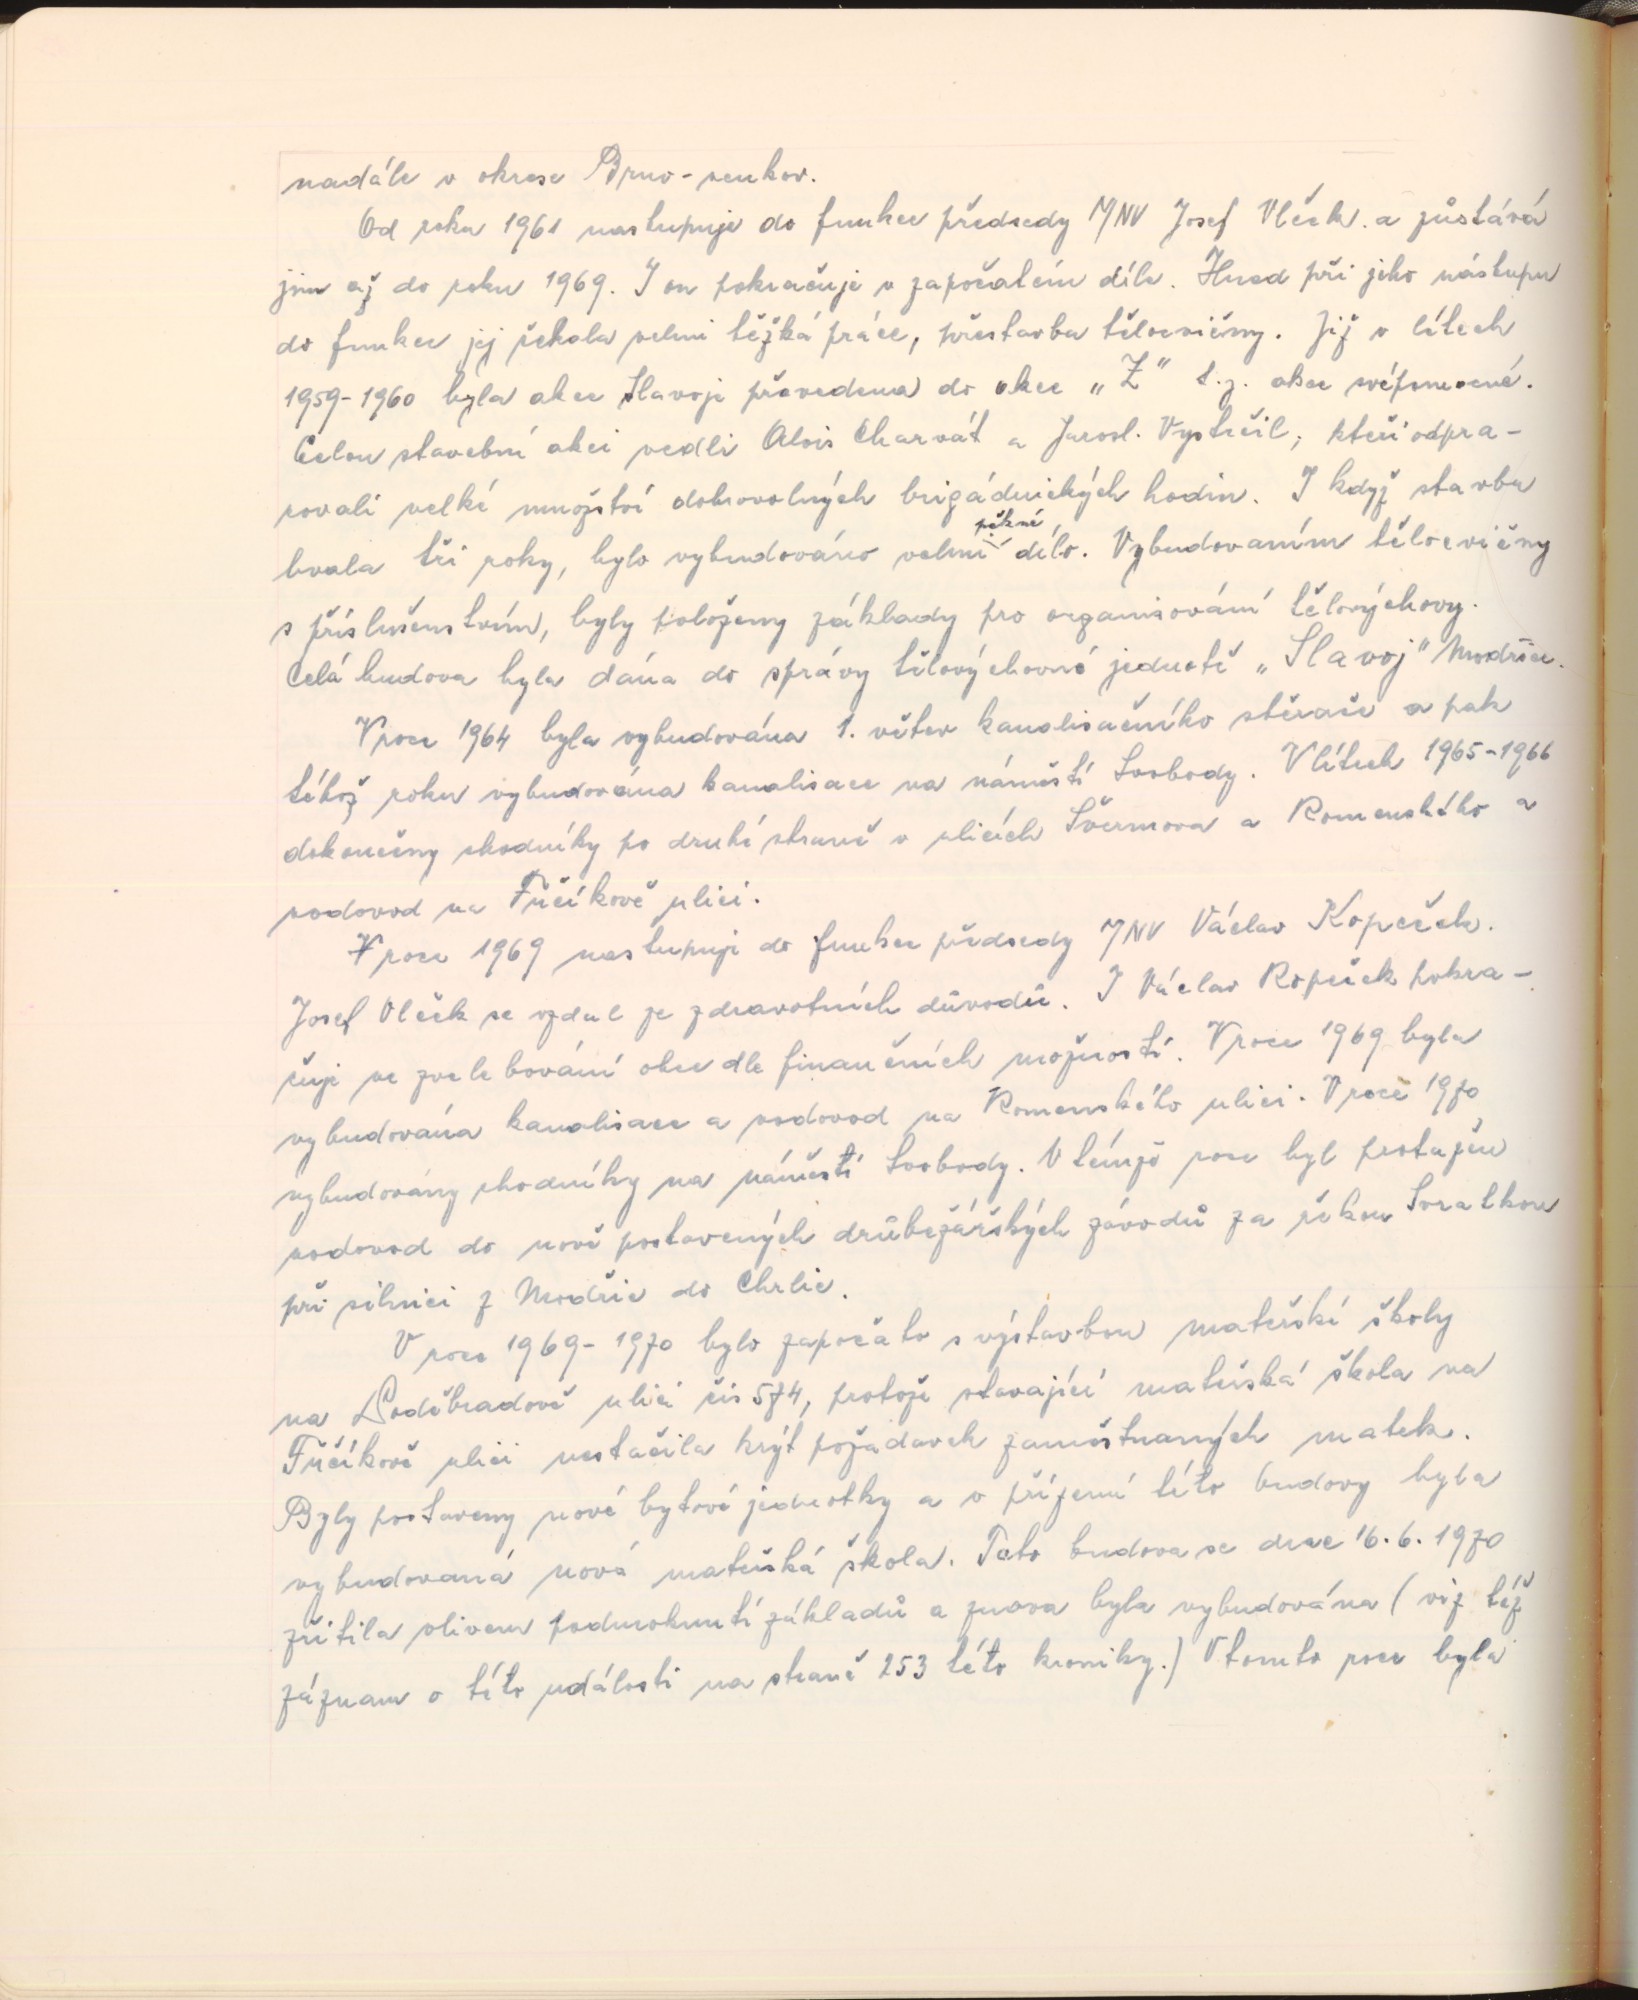 nadále v okrese Brno-venkov.
Od roku 1961 nastupuje do funkce předsedy MNV Josef Vlček a zůstává
jím až do roku 1969. I on pokračuje v započatém díle. Hned při jeho nástupu
do funkce jej čekala velmi těžká práce, přestavba tělocvičny. Již v létech
1959-1960 byla akce Slavoje převedena do akce „Z" t.z. akce svépomocné.
Celou stavební akci vedli Alois Charvát a Jarosl. Vystrčil, kteří odpra-
covali velké množství dobrovolných brigádnických hodin. I když stavba
trvala tři roky, bylo vybudováno velmi pěkné dílo. Vybudovaním tělocvičny
s příslušenstvím, byly položeny základy pro organisování tělovýchovy.
Celá budova byla dána do správy tělovýchovné jednotě „Slavoj" Modřice.
V roce 1964 byla vybudována 1. větev kanalisačního stěrače a pak
téhož roku vybudována kanalisace na náměstí Svobody. V létech 1965-1966
dokončeny chodníky po druhé straně v ulicích Švermova a Komenského a
vodovod na Fučíkově ulici.
V roce 1969 nastupuje do funkce předsedy MNV Václav Kopeček.
Josef Vlček se vzdal ze zdravotních důvodů. I Václav Kopeček pokra-
čuje ve zvelebování obce dle finančních možností. V roce 1969 byla
vybudována kanalisace a vodovod na Komenského ulici. V roce 1970
vybudovány chodníky na náměstí Svobody. V témže roce byl protažen
vodovod do nově postavených drůbežářských závodů za řekou Svratkou
při silnici z Modřic do Chrlic.
V roce 1969-1970 bylo započato s výstavbou mateřské školy
na Poděbradově ulici čís 574, protože stavající mateřská škola na
Fučíkově ulici nestačila krýt požadavek zaměstnaných matek.
Byly postaveny nové bytové jednotky a v přízemí této budovy byla
vybudovaná nová mateřská škola. Tato budova se dne 16.6.1970
zřítila vlivem podmoknutí základů a znova byla vybudována (viz též
záznam o této události na straně 253 této kroniky.) V tomto roce byla